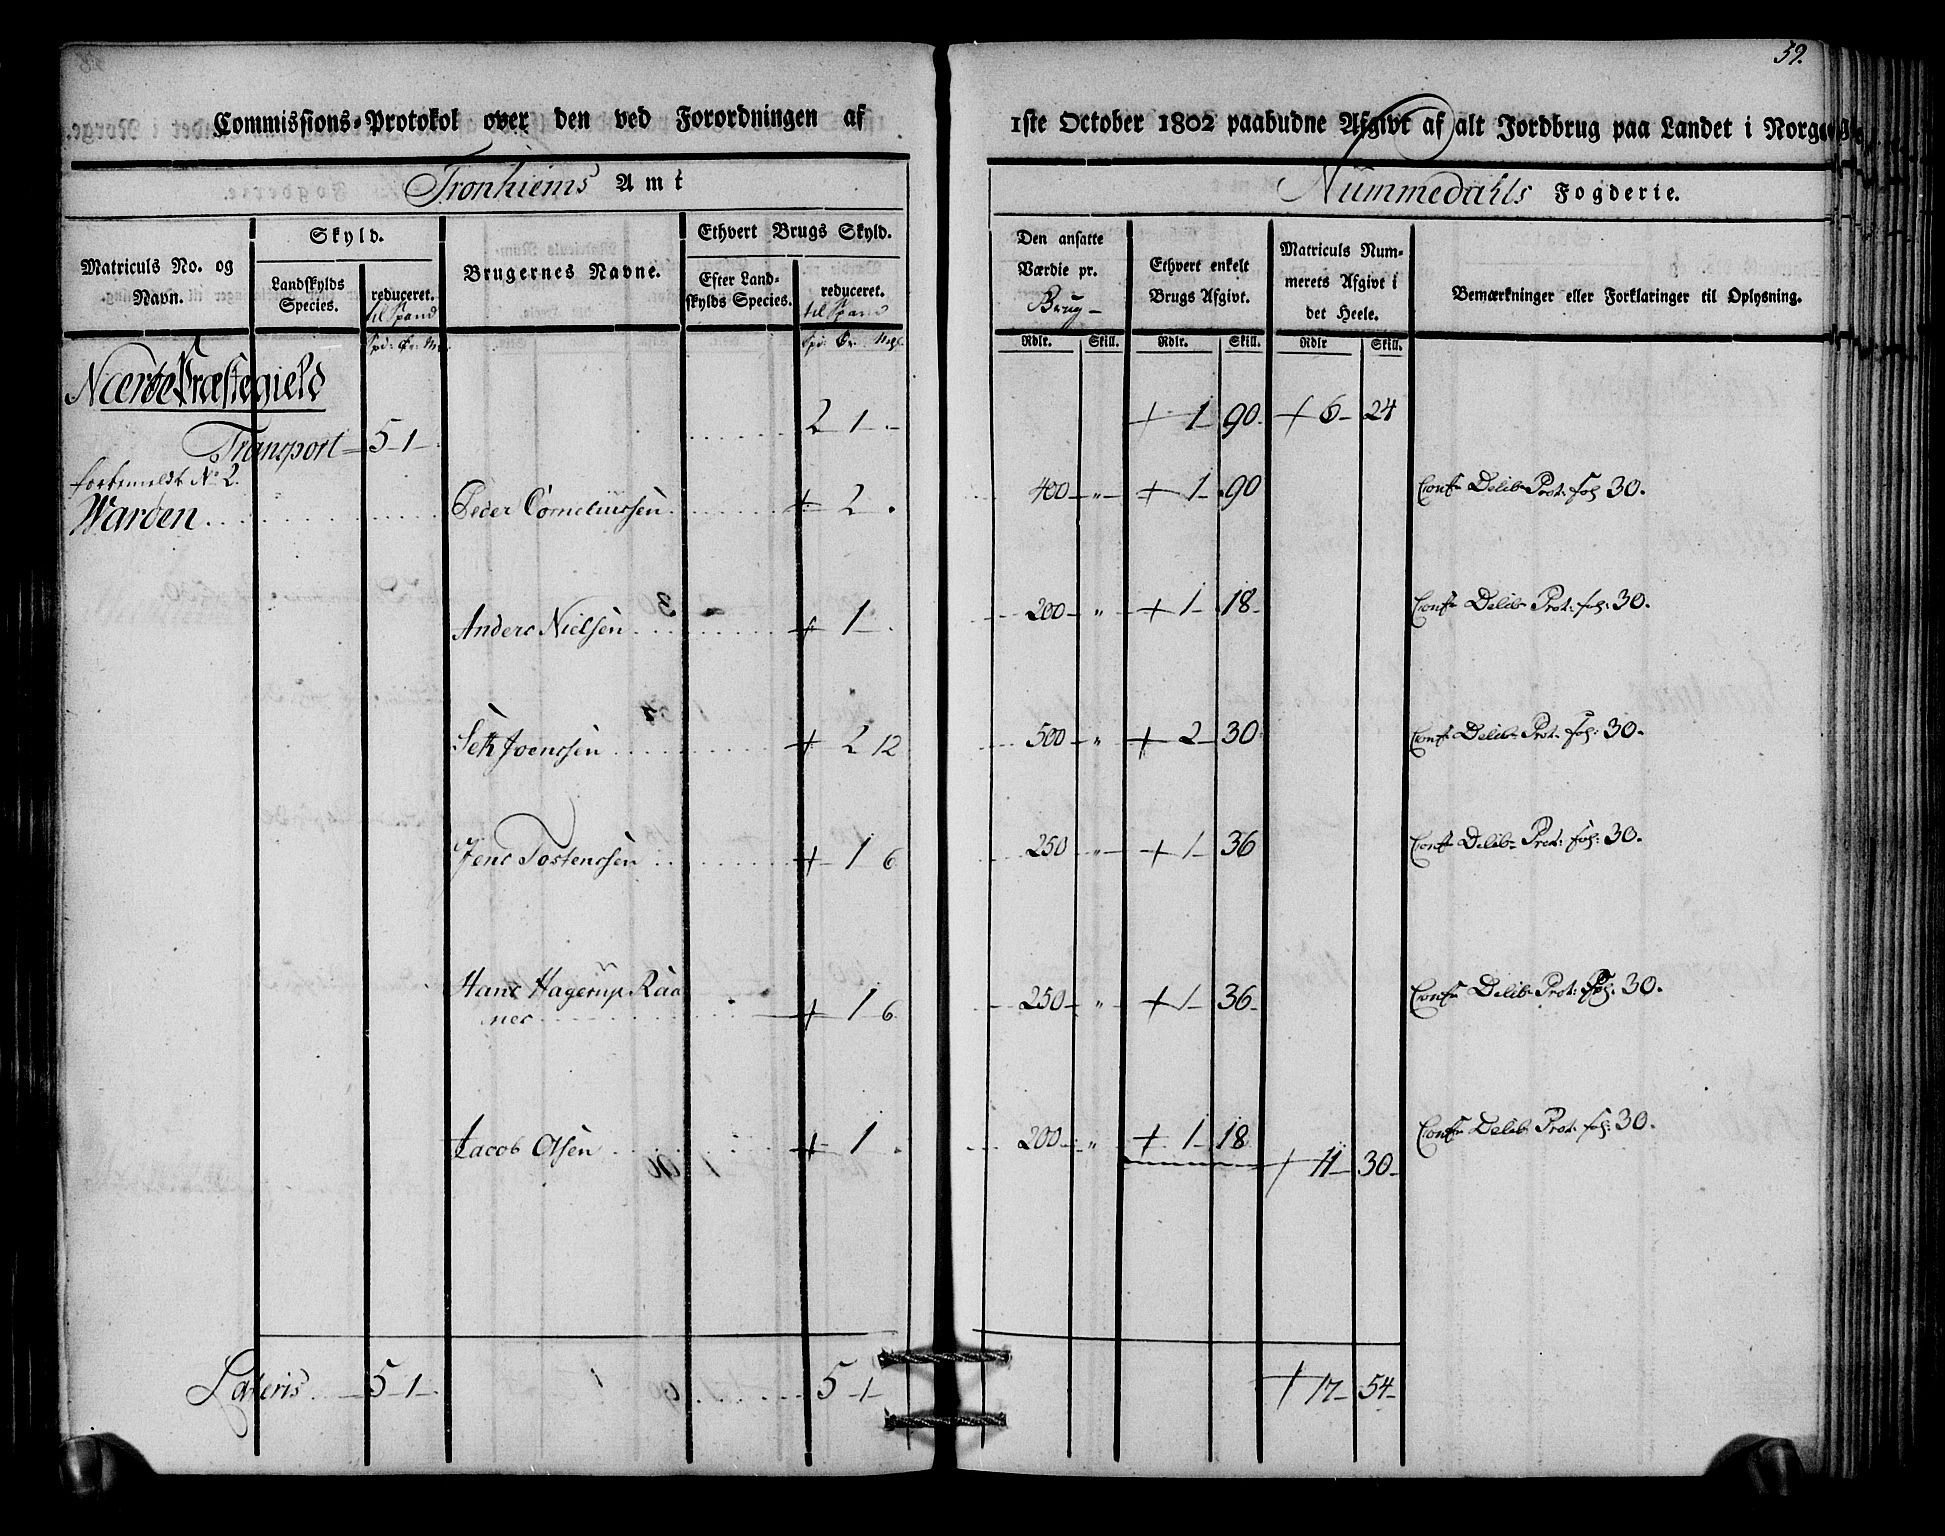 59.
Commissions-Protokol over den ved Forordningen af 1ste October 1802 paabudne Afgivt af alt Jordbrug paa Landet i Norge.
Tronhiems Amt
Nummedahls Fogderie.
Matriculs No. og Navn.
Skyld.
Landskylds Species.
reduceret.
til Spand
Brugernes Navne.
Ethvert Brugs Skyld.
Efter Landskylds Species.
reduceret.
til Spand
Den ansatte Værdie pr. Brug
Ethvert enkelt Brugs Afgivt.
Matriculs Nummerets Afgivt i det Heele.
Bemærkninger eller Forklaringer til Oplysning.
Rdlr. Skill. Rdlr. Skill. Rdlr Skill.
Nærøe Præstegield
Transport 5 1 2 1 + 1 90 + 6 24
No 2.
Warden Peder Corneliussen + 2 400 " + 1 90 Conf Delib Prot: fol 30.
Anders Nielsen + 1 200 " + 1 18 Conf Delib Prot: fol: 30.
Seth Joenssen + 2 12 500 " + 2 30 Conf Delib Prot: fol: 30.
Jens Tostenssen + 1 6 250 " + 1 36 Conf Delib Prot: fol: 30.
Hans Hagerup Raa
ner + 1 6 250 " + 1 36 Conf Delib Prot: fol. 30.
Jacob Olsen + 1 200 " + 1 18 Conf Delib Prot. fol: 30.
+ 11 30
Lateris 5 1 5 1 + 17 54